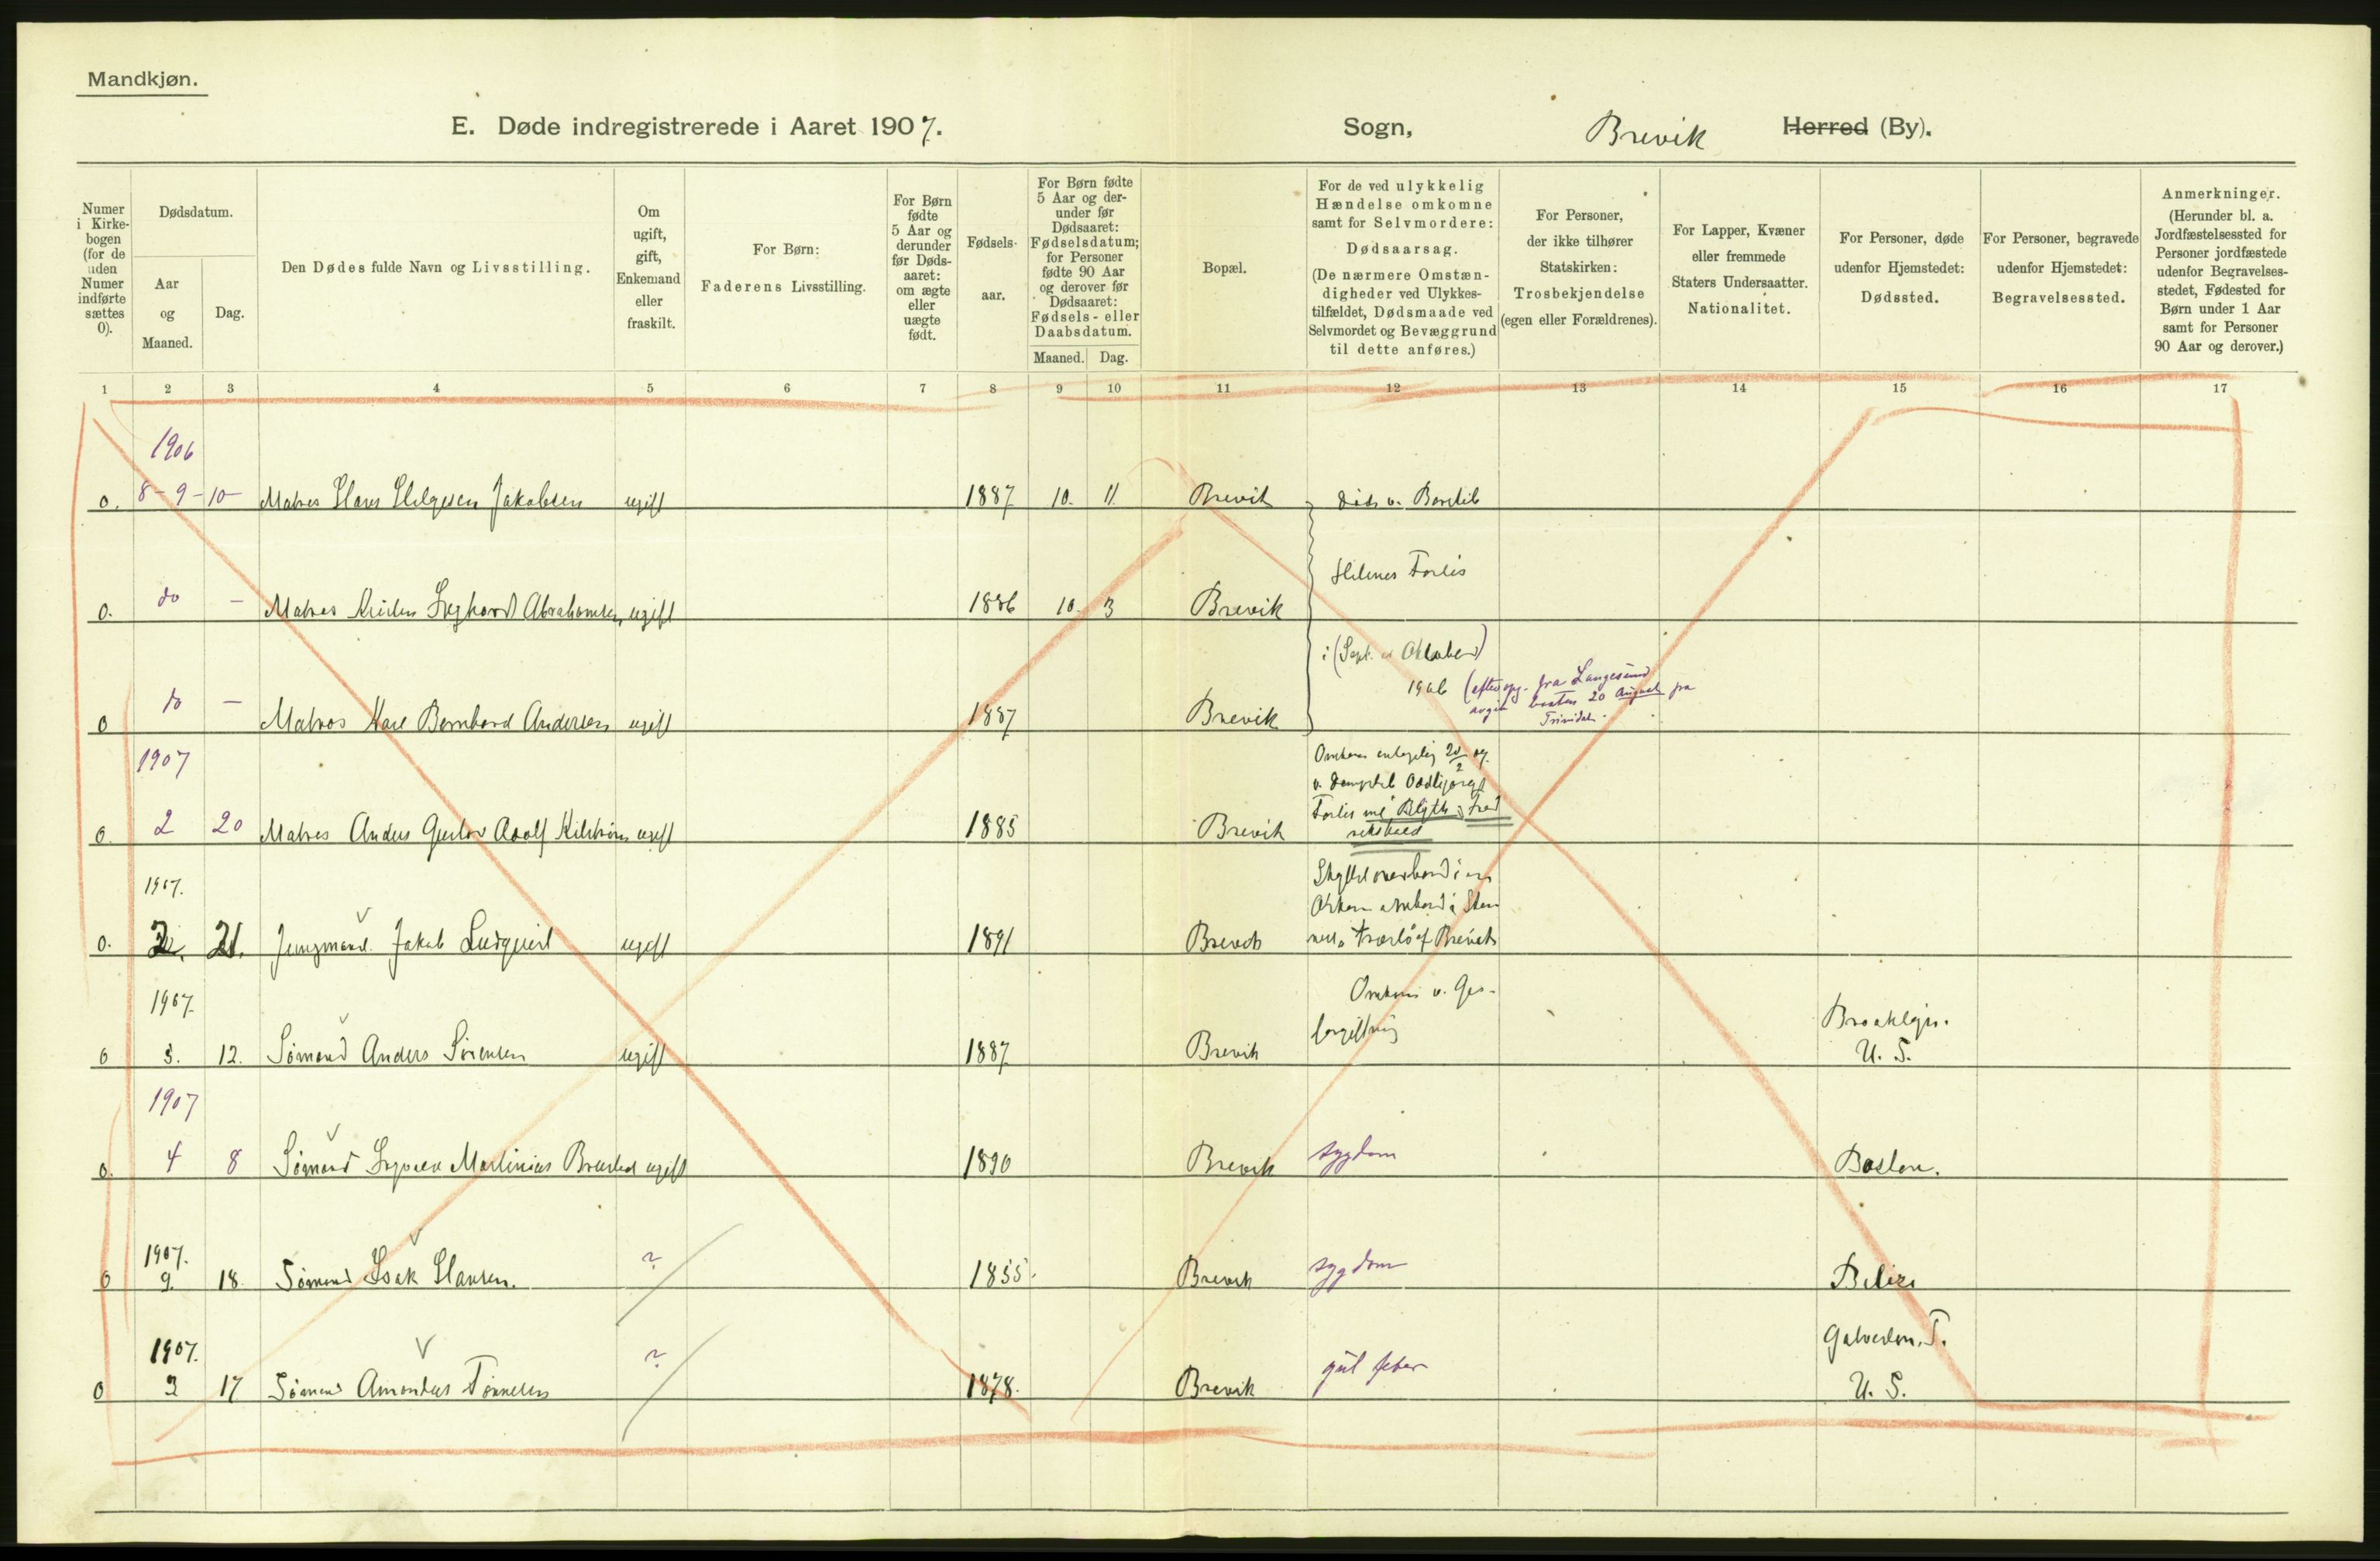 Mandkjøn.
E. Døde indregistrerede i Aaret 1907. Sogn, Brevik Herred (By).
Numer i Kirkebogen (for de uden Numer indførte sættes 0).
Dødsdatum.
Aar og Maaned.
Dag.
Den Dødes fulde Navn og Livsstilling.
Om ugift, gift, Enkemand eller fraskilt.
For Børn: Faderens Livsstilling.
For Børn fødte 5 Aar og derunder før Dødsaaret: om ægte eller uægte født.
Fødselsaar.
For Børn fødte 5 Aar og derunder før Dødsaaret: Fødselsdatum; for Personer fødte 90 Aar og derover før Dødsaaret: Fødsels- eller Daabsdatum.
Maaned. Dag.
Bopæl.
For de ved ulykkelig Hændelse omkomne samt for Selvmordere: Dødsaarsag. (De nærmere Omstændigheder ved Ulykkestilfældet, Dødsmaade ved Selvmordet og Bevæggrund til dette anføres.)
For Personer, der ikke tilhører Statskirken: Trosbekjendelse (egen eller Forældrenes).
For Lapper, Kvæner eller fremmede Staters Undersaatter. Nationalitet.
For Personer, døde udenfor Hjemstedet: Dødssted.
For Personer, begravede udenfor Hjemstedet: Begravelsessted.
Anmerkninger. (Herunder bl. a. Jordfæstelsessted for Personer jordfæstede udenfor Begravelsesstedet, Fødested for Børn under 1 Aar samt for Personer 90 Aar og derover.)
1 2 3 4 5 6 7 8 9 10 11 12 13 14 15 16 17
1906
0. 8-9-10- Matros Hans Helgesen Jakobsen ugift 1887 10. 11. Brevik Døde v.
Helenes Forlis
0. do - Matros Abrahamsen, ugift 1886 10. 3 Brevik
i (Sept. el Oktober)
1906 (efter opg. fra Langesund
20 August fra
Trinidad.
0 do - Matros Karl Bernhard Andersen ugift 1887 Brevik
1907
Omkom 20/2 07.
v. Dampskib Oddbjørgs
Forlis
0. 2 20 Matros Anders Gustav Adolf ugift 1885 Brevik
1907.
Skyllet overbord i en
Orkan ombord i
0. 2. 21. Jungmand. Jakob ugift 1891 Brevik af Brevik
1907.
Omkom v. Gas-
forgiftning
0 3. 12. Sømand Anders Sørensen ugift 1887 Brevik Brooklyn.
U. S.
1907
0. 4 8 Sømand Martinius ugift 1890 Brevik sygdom Boston.
1907.
0 9. 18. Sømand Isak Hansen. ? 1855. Brevik sygdom Belize
1907. Galveston. T.
0 3 17 Sømand Amandus Tønnesen ? 1878. Brevik gul feber U. S.